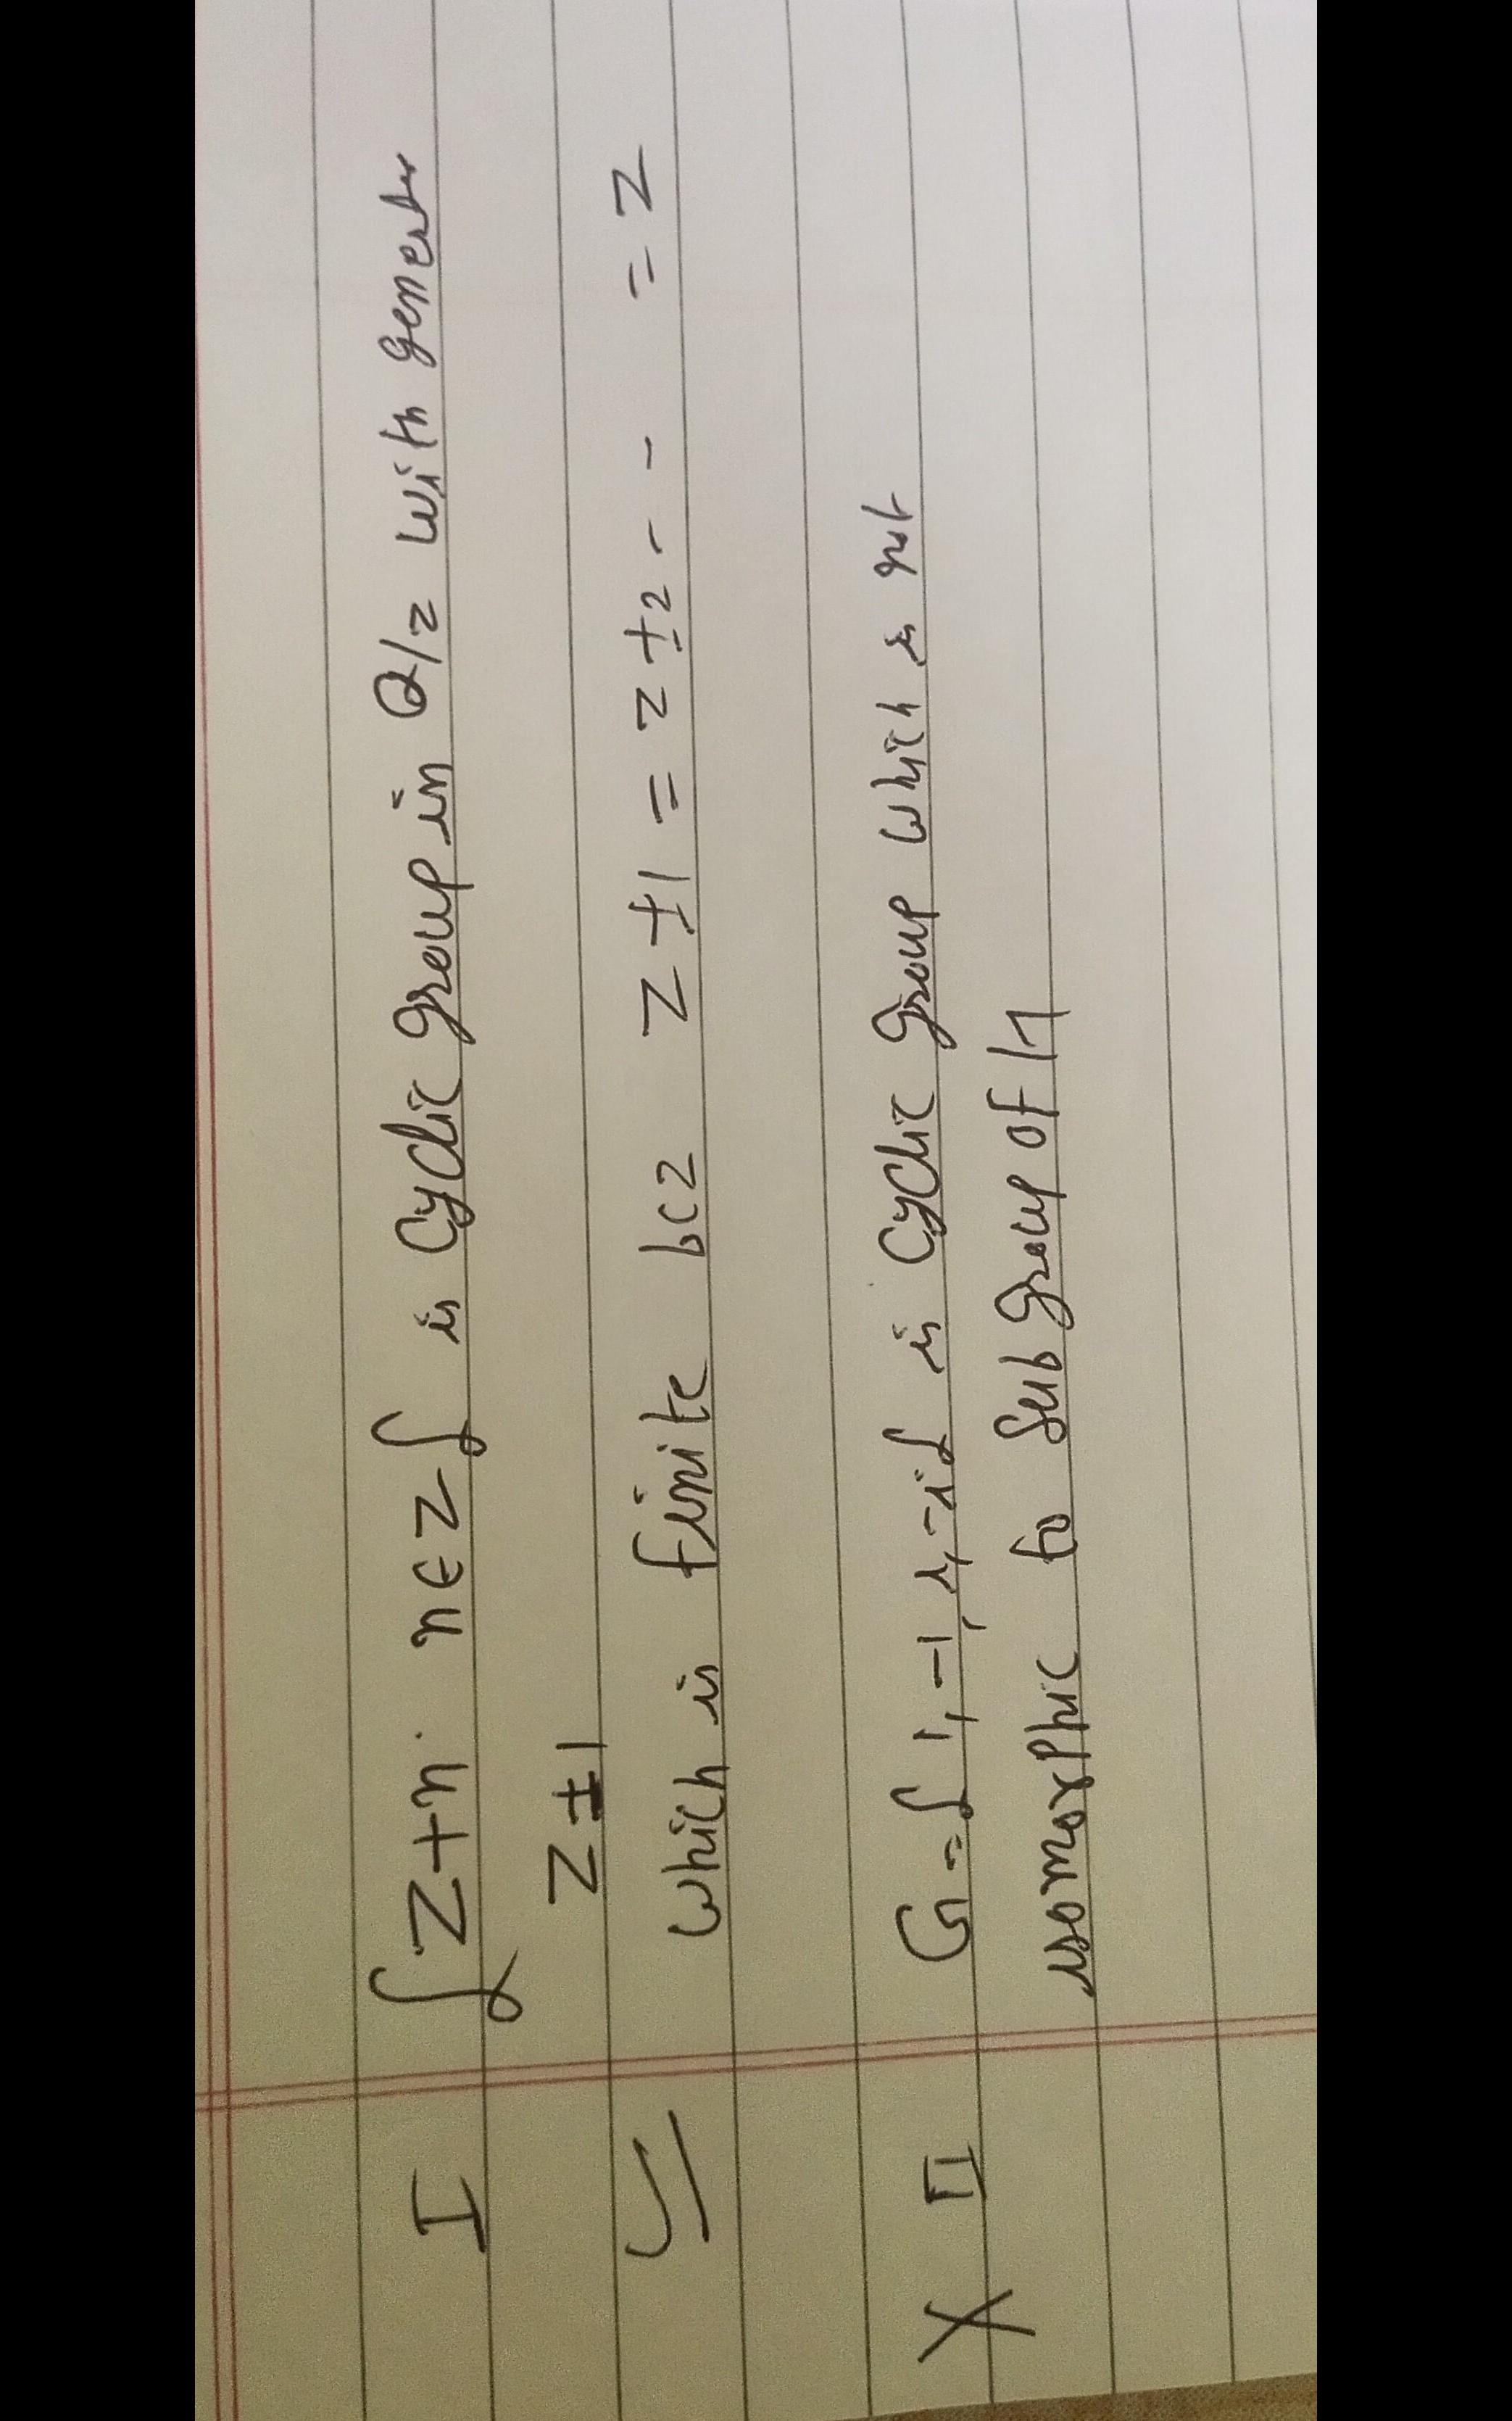 I {Z+n. n∈Z} is cyclic group in Q/Z with generator
Z±1
which is finite bcz Z±1 = Z±2 - - - = Z
X II G={1,-1,i,-i} is cyclic group which is not
isomorphic to Sub group of H